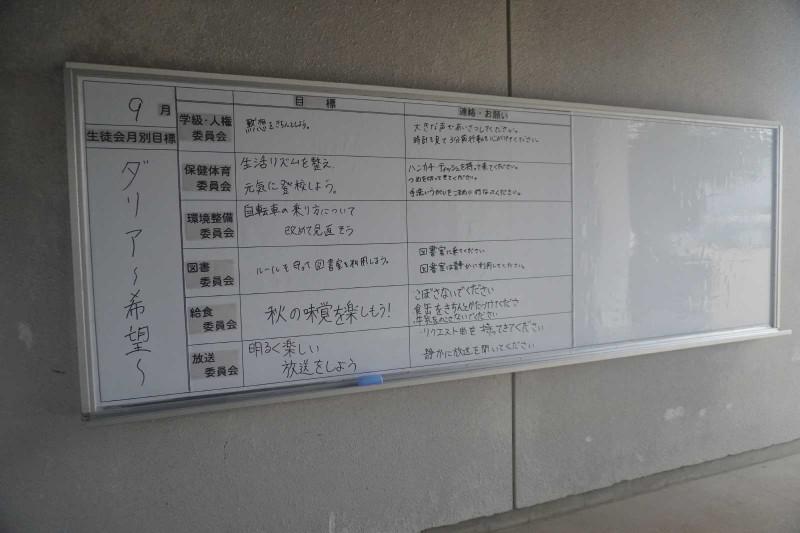 9月
生徒会月別目標
ダリア～希望～
目標
連絡・お願い
学級・人権
委員会
黙想をきちんとしよう。
大きな声であいさつしてください。
時計を見て3分前行動を心がけてください。
保健体育
委員会
生活リズムを整え
元気に登校しよう。
ハンカチ ティッシュを持って来てください。
つめを切ってきてください。
手洗いうがいをこまめに行なってください。
環境整備
委員会
自転車の乗り方について
改めて見直そう
図書
委員会
ルールを守って図書室を利用しよう。
図書室に来てください
図書室は静かに利用してください。
給食
委員会
秋の味覚を楽しもう!
こぼさないでください
食缶をきちんとかたづけてくださ
牛乳をのこさないでください
放送
委員会
明るく楽しい
放送をしよう
リクエスト曲を持ってきてください
静かに放送を聞いてください